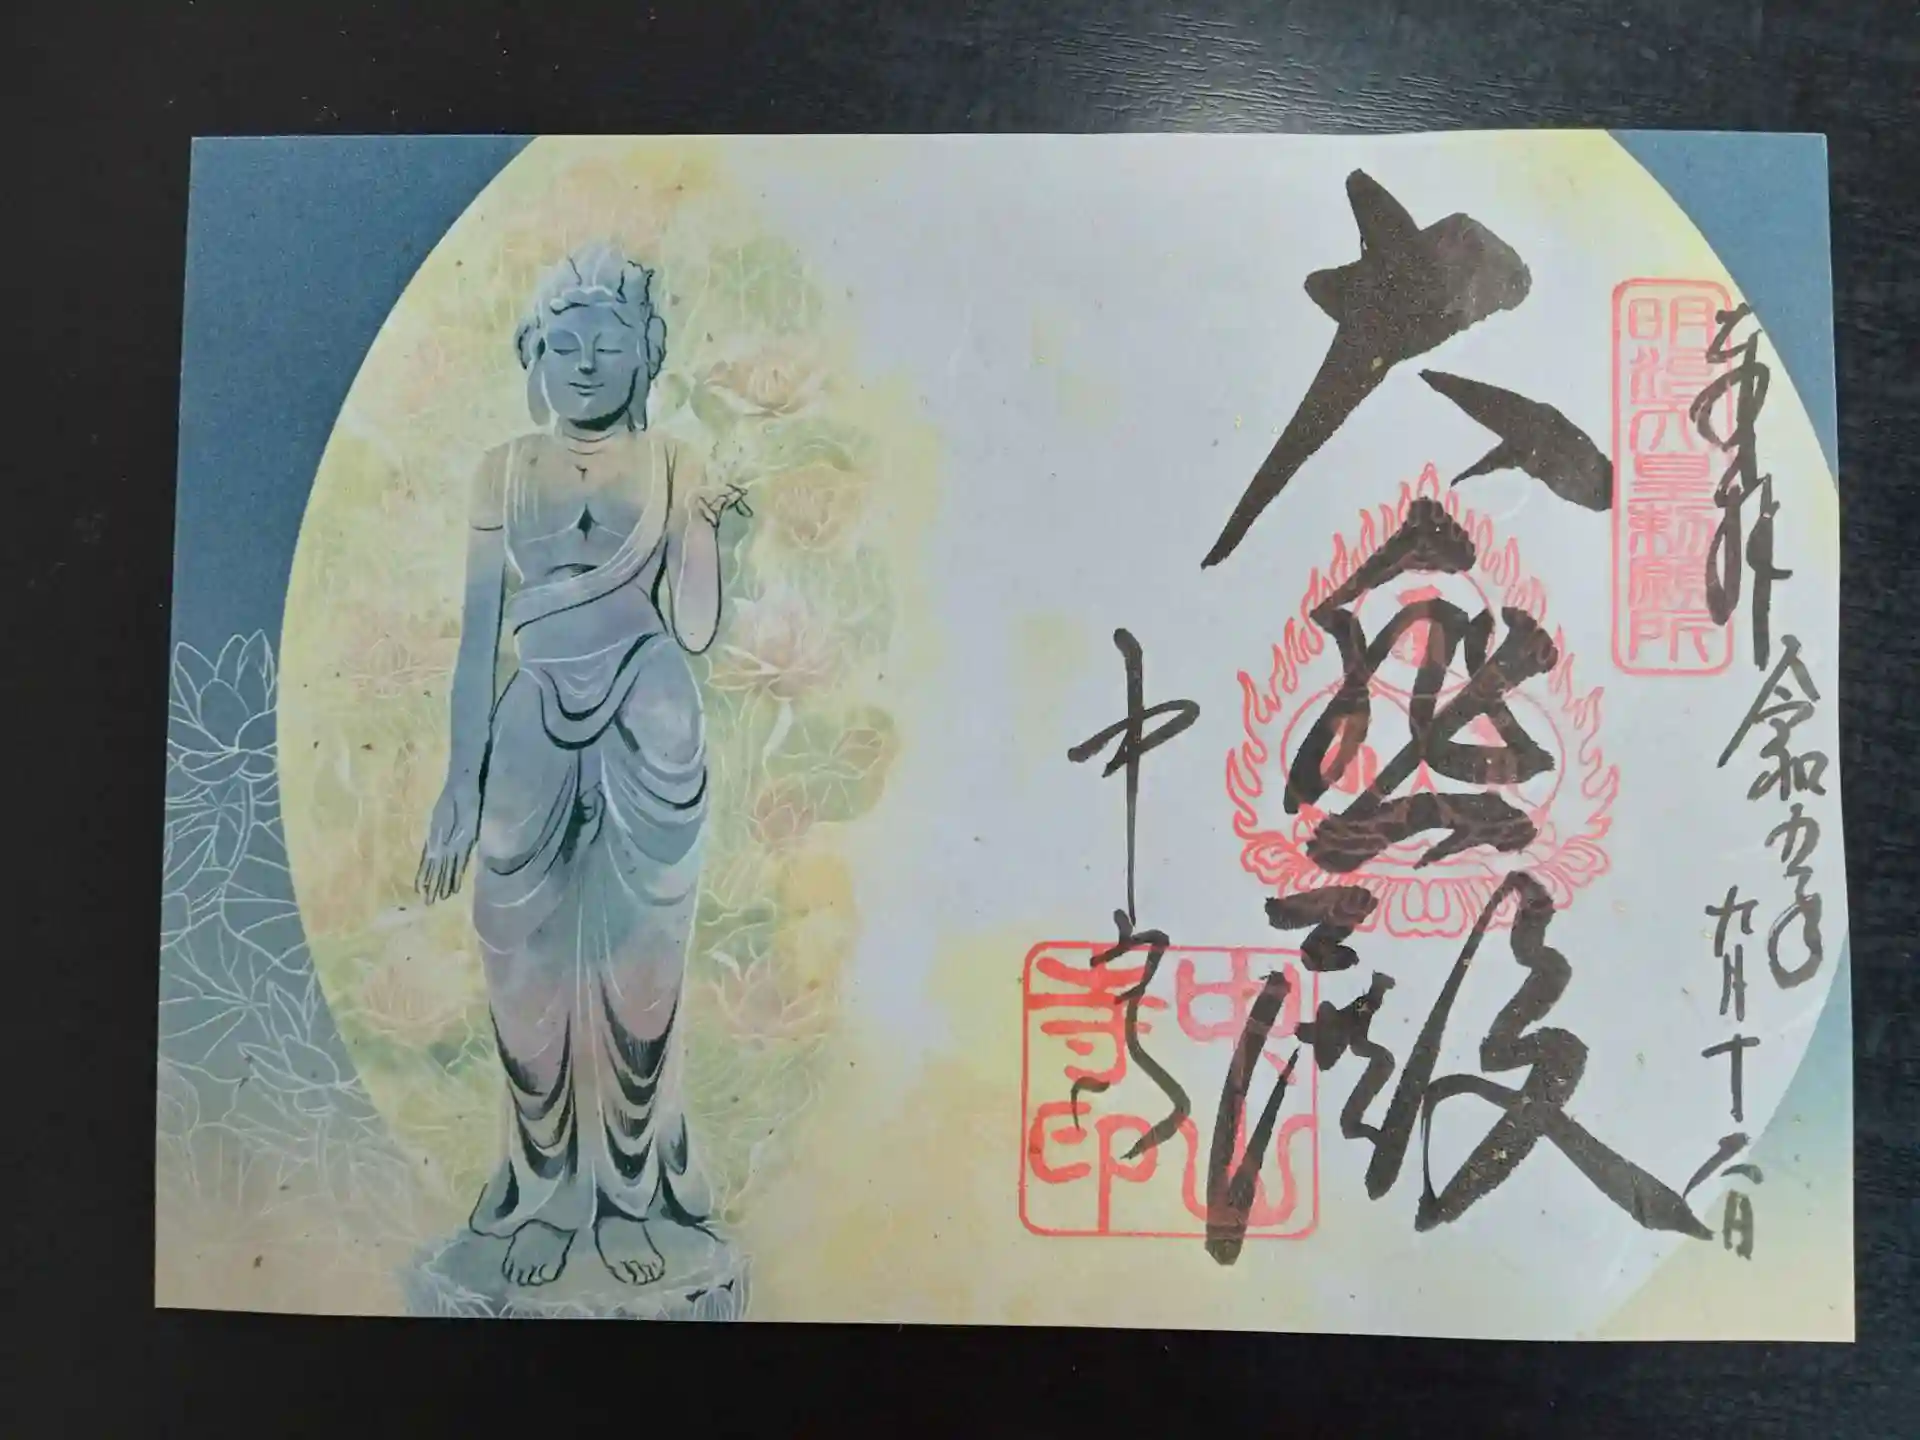 奉拝 令和五年 九月十八日
明治天皇勅願所
大悲殿
中山寺
中山寺印